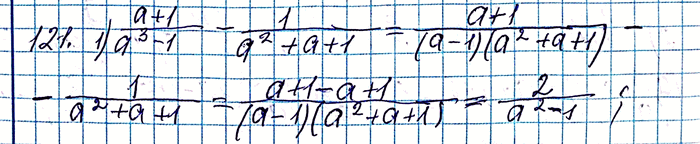 121. 1) (a+1)/(a³-1) - 1/(a²+a+1) = (a+1)/((a-1)(a²+a+1)) -
- 1/(a²+a+1) = (a+1-a+1)/((a-1)(a²+a+1)) = 2/(a²-1) ;